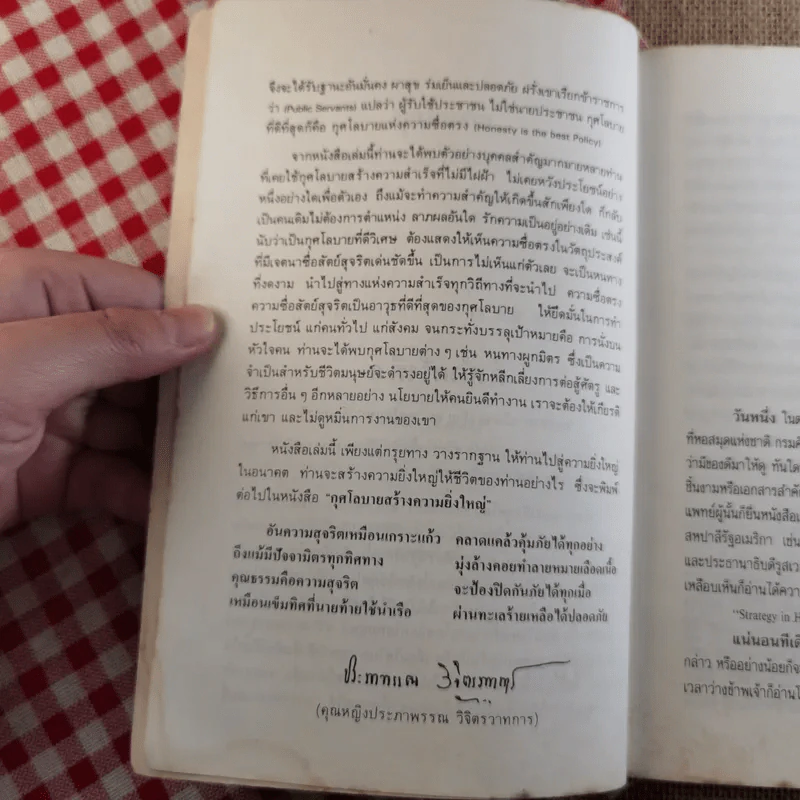 จึงจะได้รับฐานะอันมั่นคง ผาสุข ร่มเย็นและปลอดภัย ฝรั่งเขาเรียกข้าราชการ
ว่า (Public Servants) แปลว่า ผู้รับใช้ประชาชน ไม่ใช่นายประชาชน กุศโลบาย
ที่ดีที่สุดก็คือ กุศโลบายแห่งความซื่อตรง (Honesty is the best Policy)
จากหนังสือเล่มนี้ท่านจะได้พบตัวอย่างบุคคลสำคัญมากมายหลายท่าน
ที่เคยใช้กุศโลบายสร้างความสำเร็จที่ไม่มีไฝฝ้า ไม่เคยหวังประโยชน์อย่าง
หนึ่งอย่างใดเพื่อตัวเอง ถึงแม้จะทำความสำคัญให้เกิดขึ้นสักเพียงใด ก็กลับ
เป็นคนเดิมไม่ต้องการตำแหน่ง ลาภผลอันใด รักความเป็นอยู่อย่างเดิม เช่นนี้
นับว่าเป็นกุศโลบายที่ดีวิเศษ ต้องแสดงให้เห็นความซื่อตรงในวัตถุประสงค์
ที่มีเจตนาซื่อสัตย์สุจริตเด่นชัดขึ้น เป็นการไม่เห็นแก่ตัวเลย จะเป็นหนทาง
ที่งดงาม นำไปสู่ทางแห่งความสำเร็จทุกวิถีทางที่จะนำไป ความซื่อตรง
ความซื่อสัตย์สุจริตเป็นอาวุธที่ดีที่สุดของกุศโลบาย ให้ยึดมั่นในการทำ
ประโยชน์ แก่คนทั่วไป แก่สังคม จนกระทั่งบรรลุเป้าหมายคือ การนั่งบน
หัวใจคน ท่านจะได้พบกุศโลบายต่าง ๆ เช่น หนทางผูกมิตร ซึ่งเป็นความ
จำเป็นสำหรับชีวิตมนุษย์จะดำรงอยู่ได้ ให้รู้จักหลีกเลี่ยงการต่อสู้ศัตรู และ
วิธีการอื่น ๆ อีกหลายอย่าง นโยบายให้คนยินดีทำงาน เราจะต้องให้เกียรติ
แก่เขา และไม่ดูหมิ่นการงานของเขา
หนังสือเล่มนี้ เพียงแต่กรุยทาง วางรากฐาน ให้ท่านไปสู่ความยิ่งใหญ่
ในอนาคต ท่านจะสร้างความยิ่งใหญ่ให้ชีวิตของท่านอย่างไร ซึ่งจะพิมพ์
ต่อไปในหนังสือ "กุศโลบายสร้างความยิ่งใหญ่"
อันความสุจริตเหมือนเกราะแก้ว คลาดแคล้วคุ้มภัยได้ทุกอย่าง
ถึงแม้มีปัจจามิตรทุกทิศทาง มุ่งล้างคอยทำลายหมายเลือดเนื้อ
คุณธรรมคือความสุจริต จะป้องปิดกันภัยได้ทุกเมื่อ
เหมือนเข็มทิศที่นายท้ายใช้นำเรือ ผ่านทะเลร้ายเหลือได้ปลอดภัย
(คุณหญิงประภาพรรณ วิจิตรวาทการ)
วันหนึ่ง ใน
ที่หอสมุดแห่งชาติ กรมศิ
ว่ามีของดีมาให้ดู ทันใด
ชิ้นงามหรือเอกสารสำคั
แพทย์ผู้นั้นก็ยืนหนังสือเ
สหปาลีรัฐอเมริกา เช่น
และประธานาธิบดีรูสเว
เหลือบเห็นก็อ่านได้ควา
"Strategy in H
แน่นอนทีเดี
กล่าว หรืออย่างน้อยก็จ
เวลาว่างข้าพเจ้าก็อ่านไ